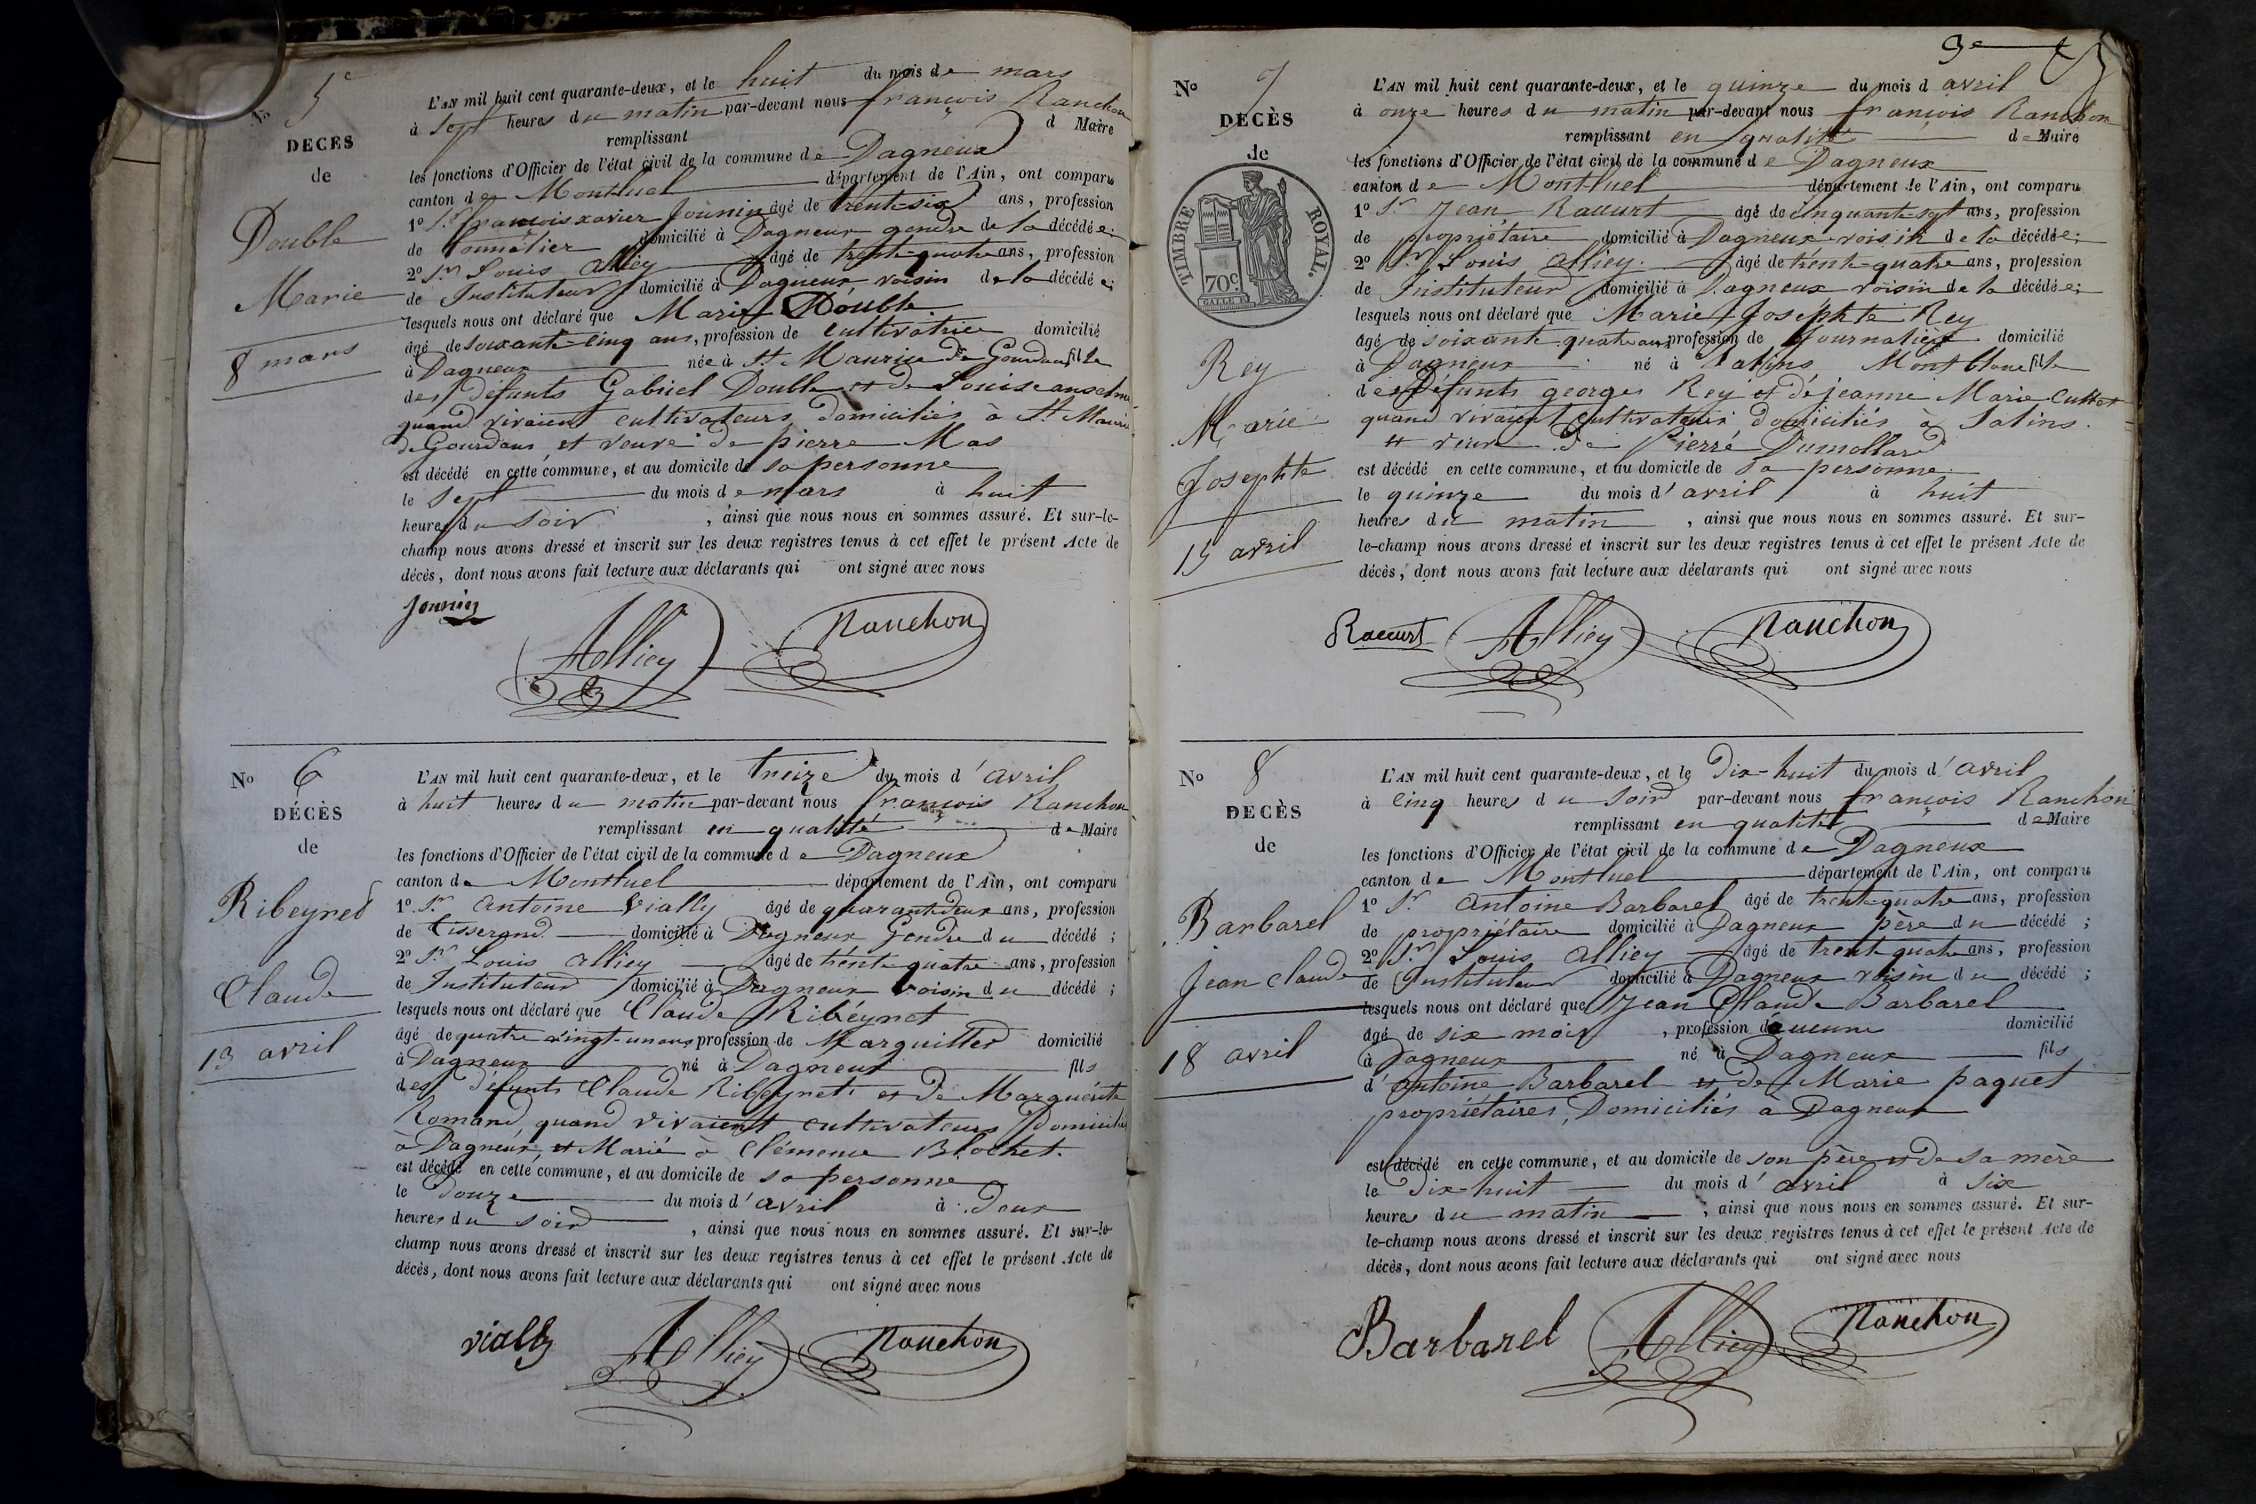 No 5e
DÉCÈS
de
Double
Marie
8 mars
L'AN mil huit cent quarante-deux, et le huit du mois de mars
à sept heures du matin par-devant nous françois Ranchon
remplissant d Maire
les fonctions d'Officier de l'état civil de la commune de Dagneux
canton de Montluel département de l'Ain, ont comparu
1º Sr françois xavier Jounin âgé de trente-six ans, profession
de domicilié à Dagneux gendre de la décédée;
2º Sr Louis Alliey âgé de trente-quatre ans, profession
de Instituteur domicilié à Dagneux voisin de la décédée;
lesquels nous ont déclaré que Marie Double
âgé de soixante-cinq ans, profession de cultivatrice domicilié
à Dagneux née à St Maurice de Gourdans fille
des défunts Gabriel Double et de Louise anselme
quand vivaient cultivateurs domiciliés à St Maurice
de Gourdans et veuve de pierre Mas
est décédé en cette commune, et au domicile de sa personne
le sept du mois de mars à huit
heures du soir, ainsi que nous nous en sommes assuré. Et sur-le-
champ nous avons dressé et inscrit sur les deux registres tenus à cet effet le présent Acte de
décès, dont nous avons fait lecture aux déclarants qui ont signé avec nous
Jounin Alliey Ranchon
No 6
DÉCÈS
de
Ribeynet
Claude
13 avril
L'AN mil huit cent quarante-deux, et le treize du mois d'avril
à huit heures du matin par-devant nous françois Ranchon
remplissant en qualité de Maire
les fonctions d'Officier de l'état civil de la commune de Dagneux
canton de Montluel département de l'Ain, ont comparu
1º Sr Antoine Vially âgé de quarante-deux ans, profession
de tisserand domicilié à Dagneux Gendre du décédé;
2º Sr Louis Alliey âgé de trente-quatre ans, profession
de Instituteur domicilié à Dagneux voisin du décédé;
lesquels nous ont déclaré que Claude Ribéynet
âgé de quatre vingt-un ans profession de Marguiller domicilié
à Dagneux né à Dagneux fils
des défunts Claude Ribeynet et de Marguérite
Romand, quand vivaient cultivateurs domiciliés
à Dagneux et Marié à Clémence Blochet.
est décédé en cette commune, et au domicile de sa personne
le douze du mois d'avril à deux
heures du soir, ainsi que nous nous en sommes assuré. Et sur-le-
champ nous avons dressé et inscrit sur les deux registres tenus à cet effet le présent Acte de
décès, dont nous avons fait lecture aux déclarants qui ont signé avec nous
vially Alliey Ranchon
3e
No 7
DÉCÈS
de
TIMBRE ROYAL.
70c
Rey
Marie
Josephte
15 avril
L'AN mil huit cent quarante-deux, et le quinze du mois d avril
à onze heures du matin par-devant nous françois Ranchon
remplissant en qualité de Maire
les fonctions d'Officier de l'état civil de la commune de Dagneux
canton de Montluel département de l'Ain, ont comparu
1º Sr Jean Raccurt âgé de cinquante-sept ans, profession
de propriétaire domicilié à Dagneux voisin de la décédée;
2º Sr Louis Alliey âgé de trente-quatre ans, profession
de Instituteur domicilié à Dagneux voisin de la décédée;
lesquels nous ont déclaré que Marie Joséphte Rey
âgé de soixante quatre ans profession de Journalière domicilié
à Dagneux né à Salins, Mont blanc fille
des Défunts georges Rey et de jeanne Marie
quand vivaient cultivateurs domiciliés à Salins.
et veuve de Pierré Dumollard
est décédé en cette commune, et au domicile de sa personne
le quinze du mois d'avril à huit
heures du matin, ainsi que nous nous en sommes assuré. Et sur-
le-champ nous avons dressé et inscrit sur les deux registres tenus à cet effet le présent Acte de
décès, dont nous avons fait lecture aux déclarants qui ont signé avec nous
Raccurt Alliey Ranchon
No 8
DÉCÈS
de
Barbarel
Jean Claude
18 avril
L'AN mil huit cent quarante-deux, et le Dix-huit du mois d'avril
à cinq heures du soir par-devant nous françois Ranchon
remplissant en qualité de Maire
les fonctions d'Officier de l'état civil de la commune de Dagneux
canton de Montluel département de l'Ain, ont comparu
1º Sr Antoine Barbarel âgé de trente-quatre ans, profession
de propriétaire domicilié à Dagneux père du décédé;
2º Sr Louis Alliey âgé de trente quatre ans, profession
de Instituteur domicilié à Dagneux voisin du décédé;
lesquels nous ont déclaré que Jean Claude Barbarel
âgé de six mois, profession d'aucune domicilié
à Dagneux né à Dagneux fils
d'Antoine Barbarel et de Marie paquet
propriétaires, Domiciliés à Dagneux
est décédé en cette commune, et au domicile de son père et de sa mère
le Dix-huit du mois d'avril à six
heures du matin, ainsi que nous nous en sommes assuré. Et sur-
le-champ nous avons dressé et inscrit sur les deux registres tenus à cet effet le présent Acte de
décès, dont nous avons fait lecture aux déclarants qui ont signé avec nous
Barbarel Alliey Ranchon